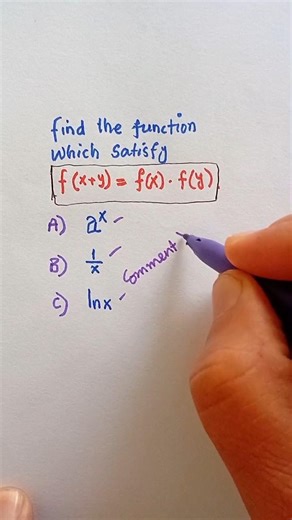 find the function
which satisfy
f(x+y) = f(x) · f(y)
A) a^x -
B) 1/x -
C) ln x -
Comment